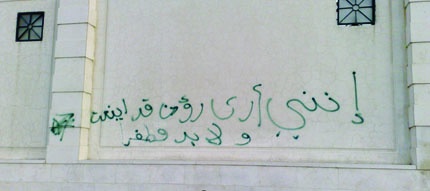 إنني أرى رؤوسا قد اينعت
ولا بد قطفها